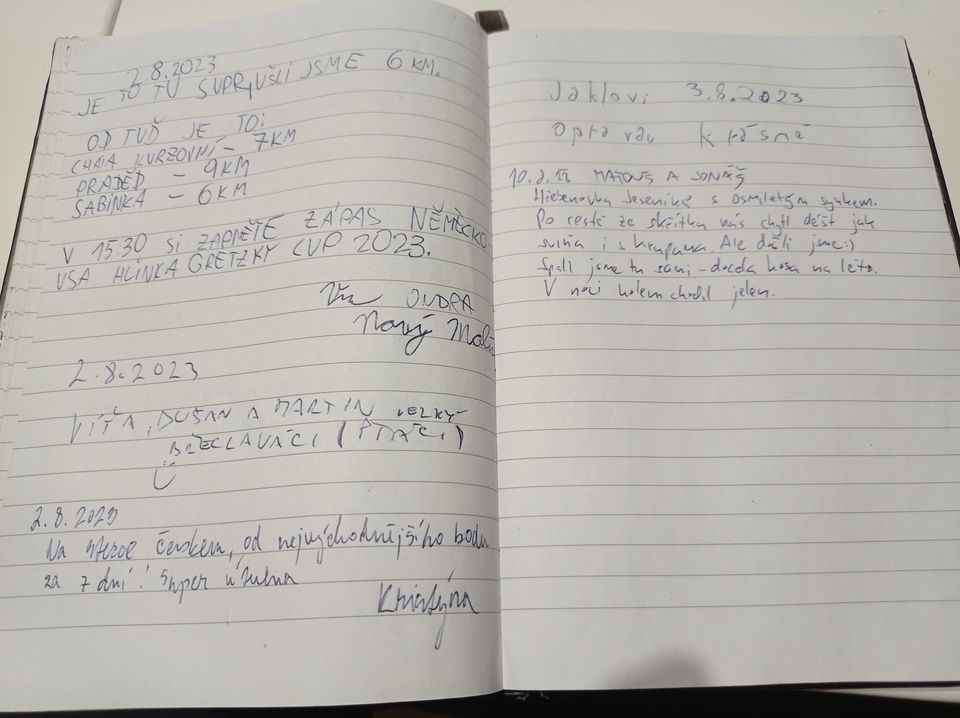 2.8.2023
JE TO TU SUPR, UŠLI JSME 6 KM.
OD TUĎ JE TO:
CHATA KURZOVNÍ - 7KM
PRADĚD - 9KM
SABINKA - 6KM
V 15:30 SI ZAPNĚTE ZÁPAS NĚMĚCKO
USA HLINKA GRETZKY CUP 2023.
ONDRA
Nový
2.8.2023
VÍŤA, DUŠAN A MARTIN VELKÝ
BŘECLAVÁCI (PTÁČI)
2.8.2023
Na stezce českem, od nejvýchodnějšího bodu
za 7 dní! Super útulna
Kristýna
Jaklovi 3.8.2023
opravdu krásné
MATOUŠ A JONÁŠ
Hřebenovka Jeseníků s osmiletým synkem.
Po cestě ze skřítku nás chytl déšť jak
sviňa i s kroupama. Ale došli jsme :)
Spali jsme tu sami - docela kosa na léto.
V noci kolem chodil jelen.